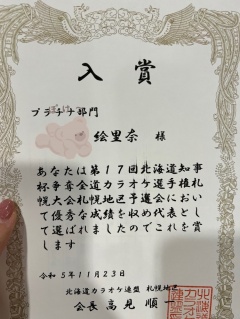 入賞
プラチナ部門
絵里奈 様
あなたは第17回北海道知事
杯争奪全道カラオケ選手権札
幌大会札幌地区予選会におい
て優秀な成績を収め代表とし
て選ばれましたのでこれを賞
します
令和 5年11月23日
北海道カラオケ連盟 札幌地区
会長 高見 順一